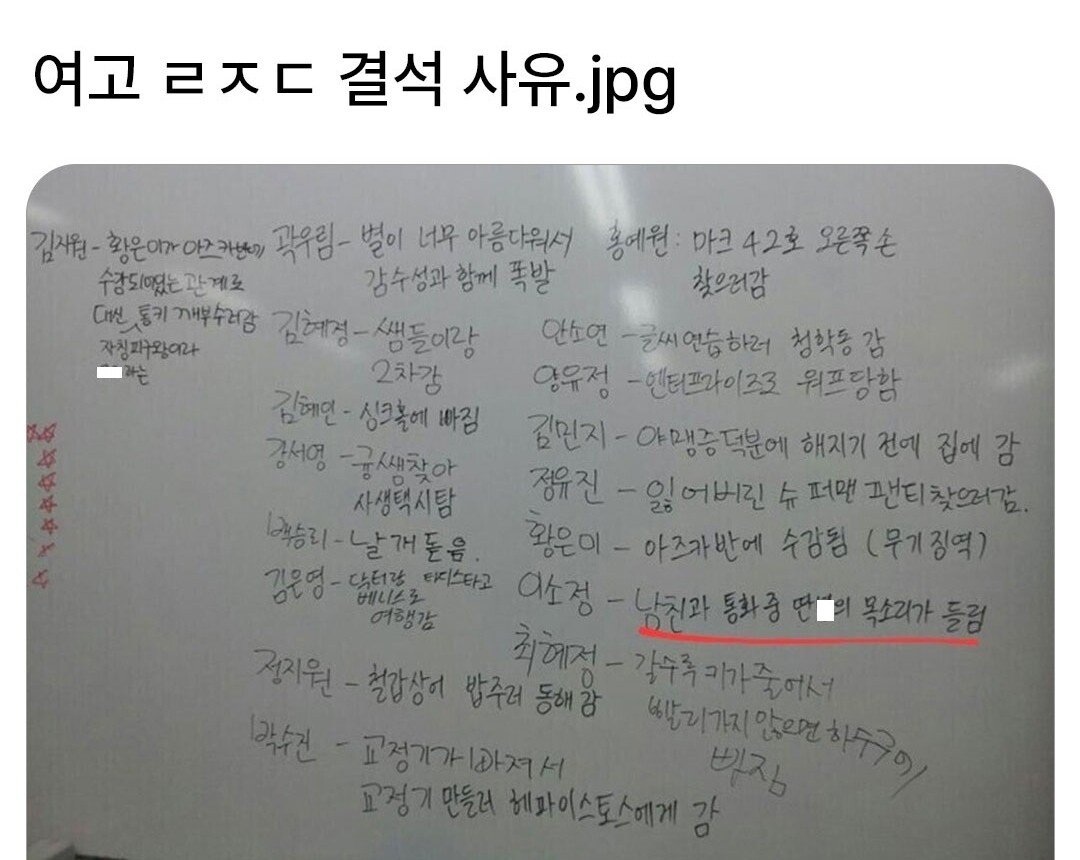 여고 ㄹㅈㄷ 결석 사유.jpg
김지원 - 황은이가 아즈카반에
수감되어있는 관계로
대신 통키 깨부수러감
자칭피구왕이라
라는
곽우림 - 별이 너무 아름다워서
감수성과 함께 폭발
김혜정 - 쌤들이랑
2차감
김혜인 - 싱크홀에 빠짐
강서영 - 귱쌤찾아
사생택시탐
백승리 - 날개 돋음.
김은영 - 닥터랑 타디스타고
베니스로
여행감
정지원 - 철갑상어 밥주러 동해 감
박수진 - 교정기가 빠져서
교정기 만들러 헤파이스토스에게 감
홍예원 : 마크 42호 오른쪽 손
찾으러감
안소연 - 글씨연습하러 청학동 감
양유정 - 엔터프라이즈로 워프당함
김민지 - 야맹증덕분에 해지기 전에 집에 감
정유진 - 잃어버린 슈퍼맨 팬티찾으러감.
황은미 - 아즈카반에 수감됨 (무기징역)
이소정 - 남친과 통화중 딴 의 목소리가 들림
최혜정 - 갈수록 키가줄어서
빨리가지않으면 하수구에
빠짐